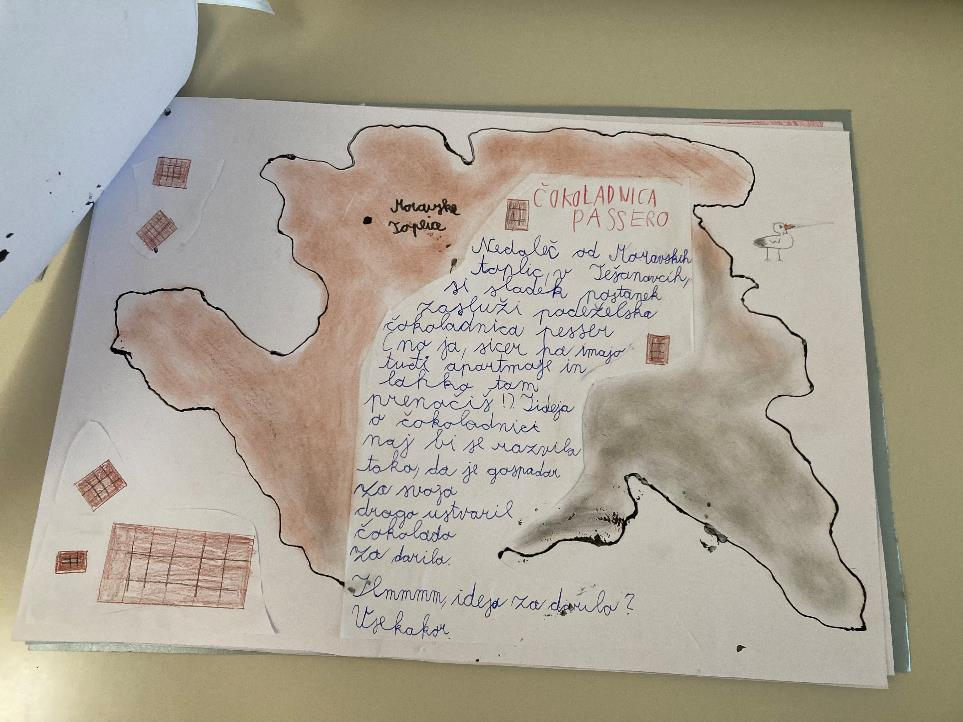 Moravske
Toplice
ČOKOLADNICA
PASSERO
Nedaleč od Moravskih
toplic, v Tešanovcih,
si sladek postanek
zasluži podeželska
čokoladnica pesser
(no ja, sicer pa imajo
tudi apartmaje in
lahko tam
prenočiš!). Iideja
o čokoladnici
naj bi se razvila
tako, da je gospodar
za svojo
drago ustvaril
čokolado
za darilo.
Hmmmm, ideja za darilo?
Vsekakor.